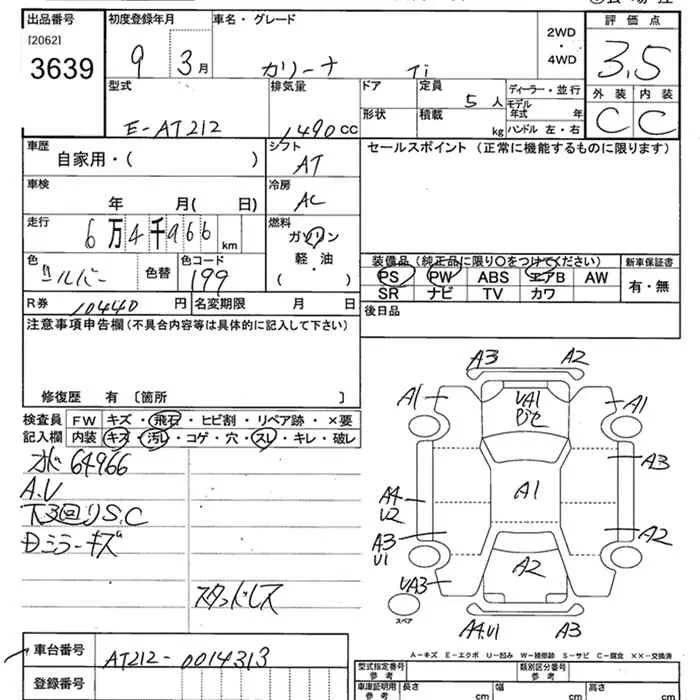 出品番号 初度登録年月 車名・グレード 2WD・4WD 評価点
[2062]
3639 9 3月 カリーナ Ti 3.5
型式 排気量 ドア 定員 5人 ディーラー・並行 外装 内装
E-AT212 1490cc 形状 積載 kg モデル年式 年 C C
ハンドル 左・右
車歴 シフト セールスポイント (正常に機能するものに限ります)
自家用・( ) AT
車検 冷房
年 月( 日) AC
走行 燃料
6万4千966km ガソリン
軽・油
( )
色 色替 色コード 装備品(純正品に限り○をつけてください) 新車保証書
シルバー 199 PS PW ABS エアB AW 有・無
SR ナビ TV カワ
R券 10440円 名変期限 月 日 後日品
注意事項申告欄(不具合内容等は具体的に記入して下さい)
修復歴 有 〔箇所 〕
検査員記入欄 FW キズ・飛石・ヒビ割・リペア跡・×要
内装 キズ・汚レ・コゲ・穴・スレ・キレ・破レ
64966
A.V
下3回りS.C
Dミラーキズ
スタッドレス
A3 A2
A1 UA1 A1
A3
A4 A1
U2
A3 A2
U1
UA3 A2
スペア
A4.U1 A3
A-キズ E-エクボ U-凹み W-補修跡 S-サビ C-腐食 XX-交換済
車台番号 AT212-0014313
登録番号
型式指定番号 参考 類別区分番号 参考
車庫証明用 参考 長さ cm 幅 cm 高さ cm